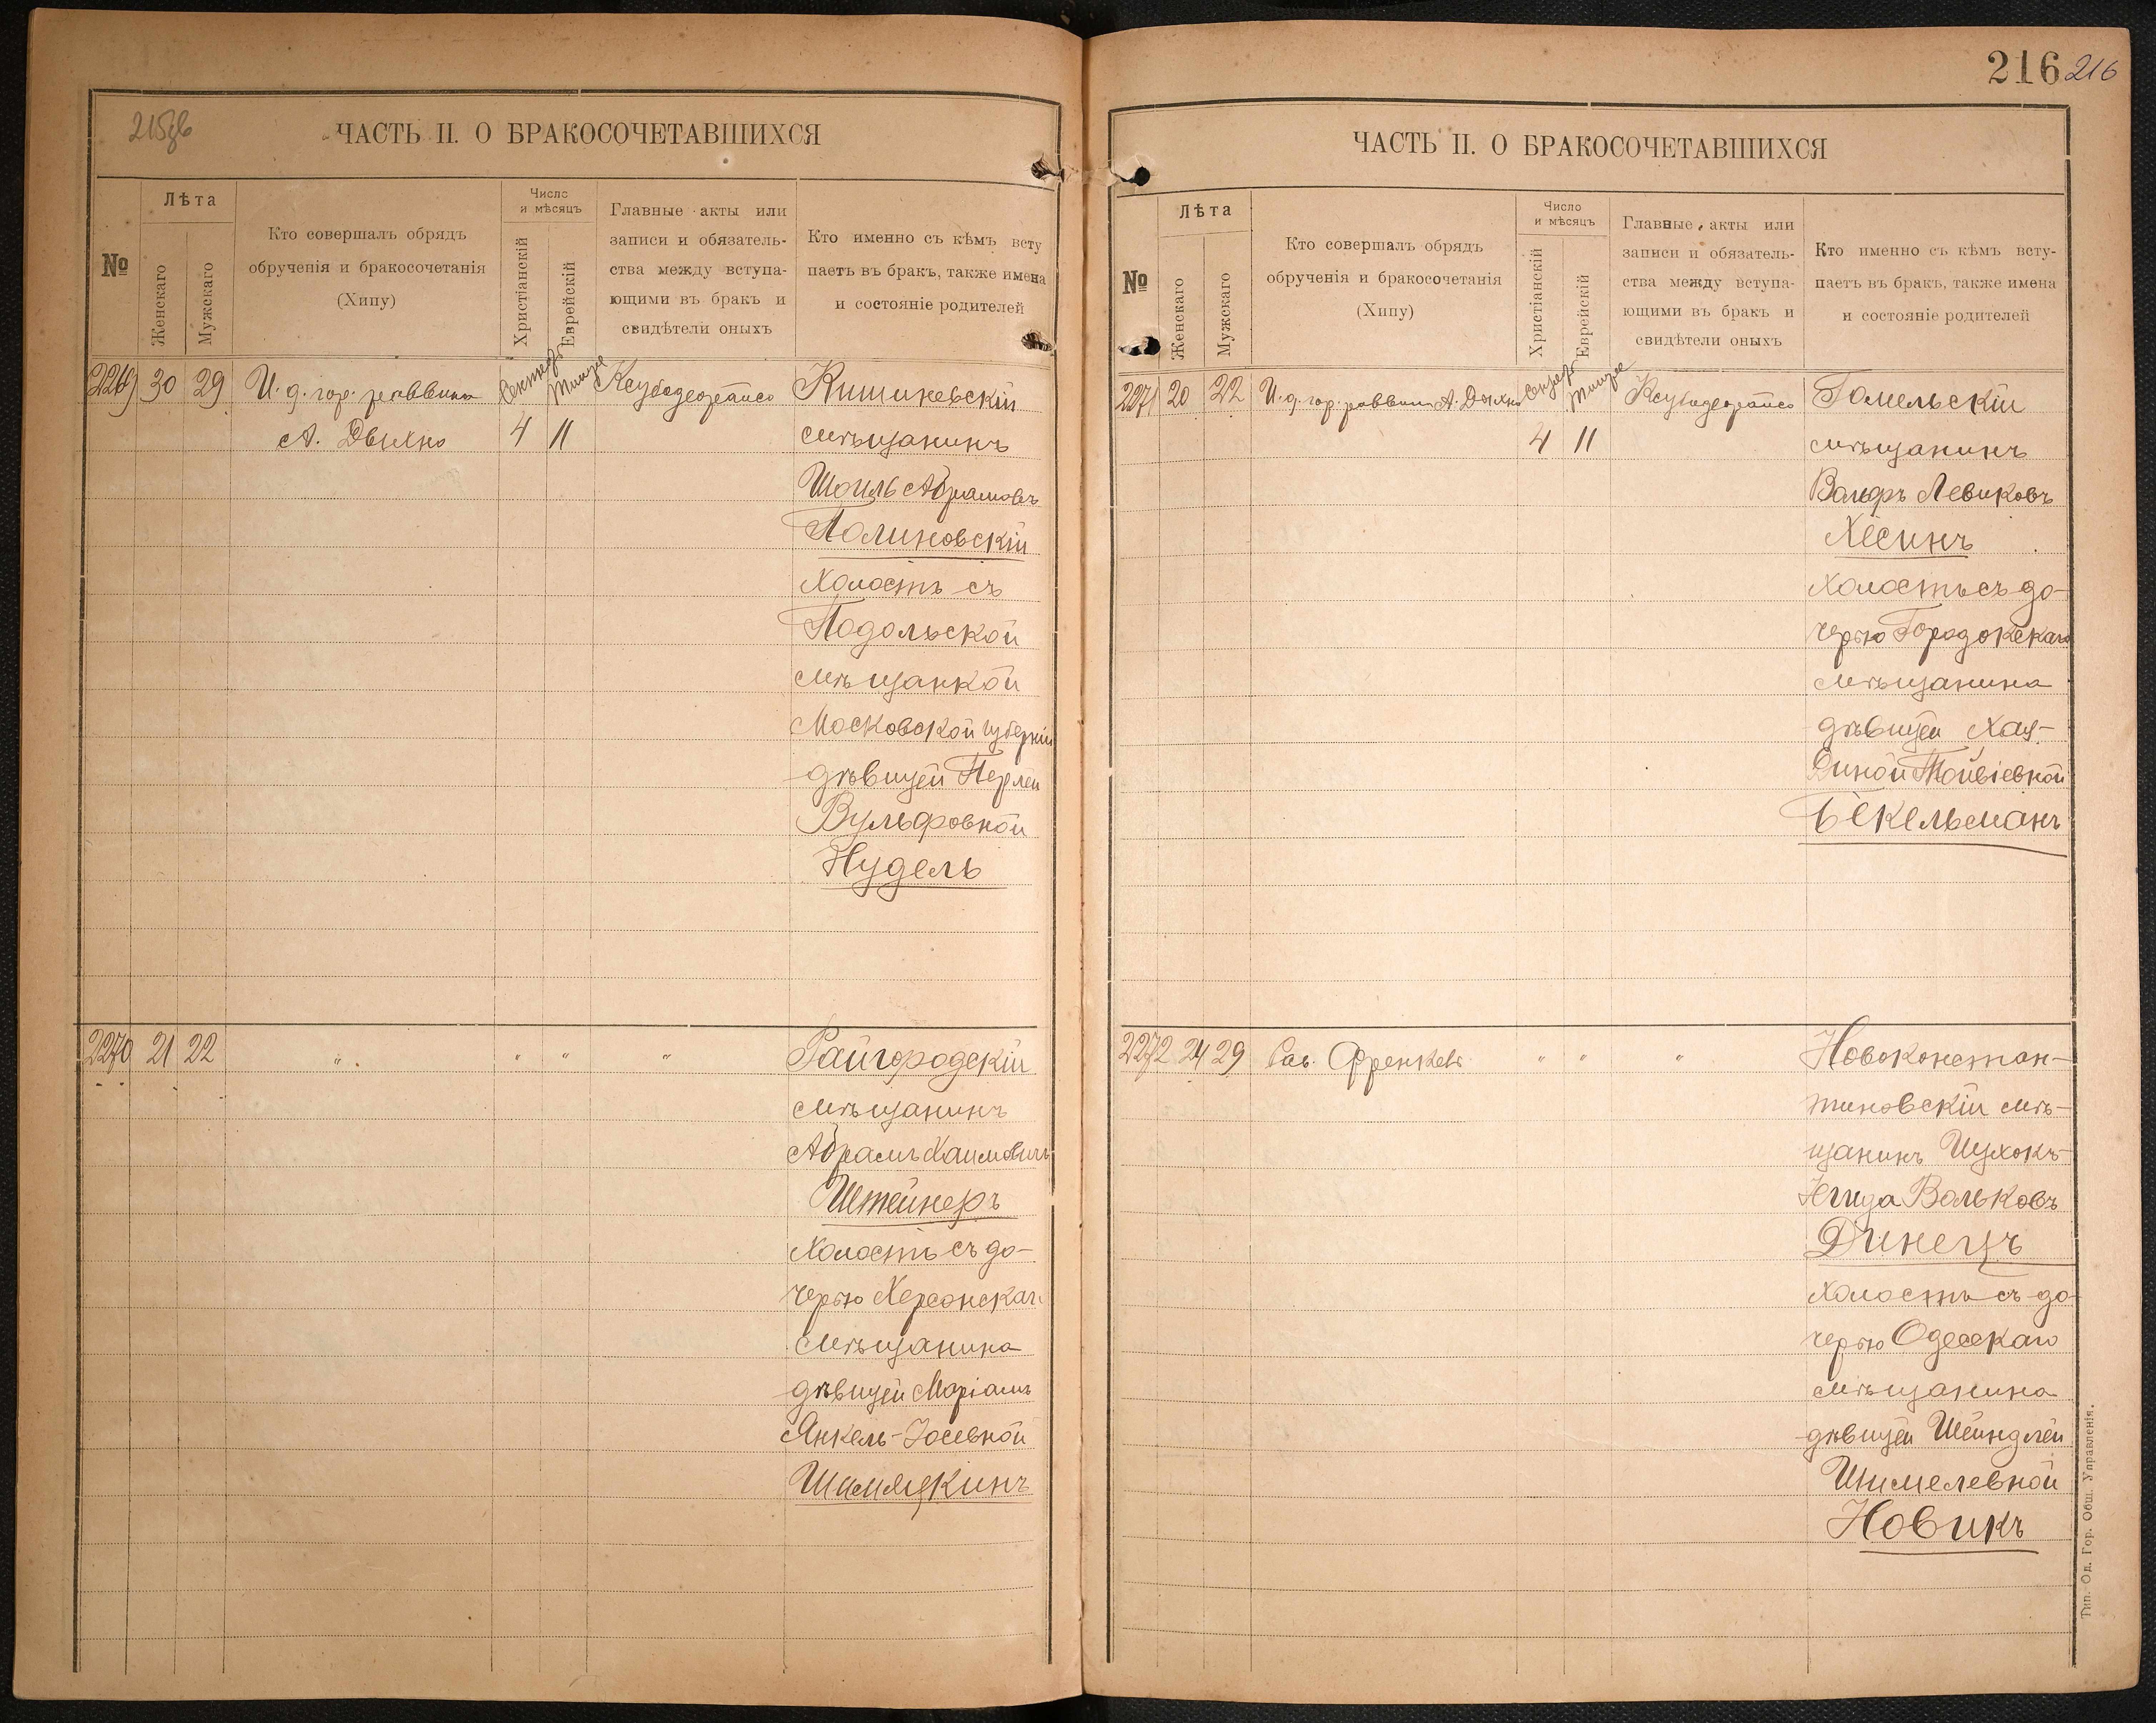 215об
ЧАСТЬ II. О БРАКОСОЧЕТАВШИХСЯ
№
Лѣта
Женскаго
Мужскаго
Кто совершалъ обрядъ
обрученія и бракосочетанія
(Хипу)
Число
и мѣсяцъ
Христіанскій
Еврейскій
Главные акты или
записи и обязатель-
ства между вступа-
ющими въ бракъ и
свидѣтели оныхъ
Кто именно съ кѣмъ всту
паетъ въ бракъ, также имена
и состояніе родителей
2269 30 29 И. д. гор. раввина Тишре Кишиневскій
А. Двихно 4 11 мѣщанинъ
Шоилъ Абрамовъ
Полиновскій
холостъ съ
Подольской
мѣщанкой
Московской губерніи
дѣвицей Перлей
Вульфовной
Нудель
2270 21 22 " " " " Райгородскій
мѣщанинъ
Абрамъ Хаимовичъ
Штейнеръ
холостъ съ до-
черью Херсонскаго
мѣщанина
дѣвицей Маріамъ
Янкель-Іосевной
216 216
ЧАСТЬ II. О БРАКОСОЧЕТАВШИХСЯ
№
Лѣта
Женскаго
Мужскаго
Кто совершалъ обрядъ
обрученія и бракосочетанія
(Хипу)
Число
и мѣсяцъ
Христіанскій
Еврейскій
Главные акты или
записи и обязатель-
ства между вступа-
ющими въ бракъ и
свидѣтели оныхъ
Кто именно съ кѣмъ всту-
паетъ въ бракъ, также имена
и состояніе родителей
2271 20 22 И. д. гор. раввина А. Двихно Тишре Гомельскій
4 11 мѣщанинъ
Вольфъ Левиковъ
Хесинъ
холостъ съ до-
черью Городокскаго
мѣщанина
дѣвицей Хая-
Диной Тойвіевной
Бекельманъ
2272 24 29 Рав. Френкель " " " Новоконстан-
тиновскій мѣ-
щанинъ Ицхокъ-
Юида Вольковъ
Динецъ
холостъ съ до-
черью Одесскаго
мѣщанина
дѣвицей Шейндлей
Шимелевной
Новикъ
Тип. Од. Гор. Общ. Управленія.